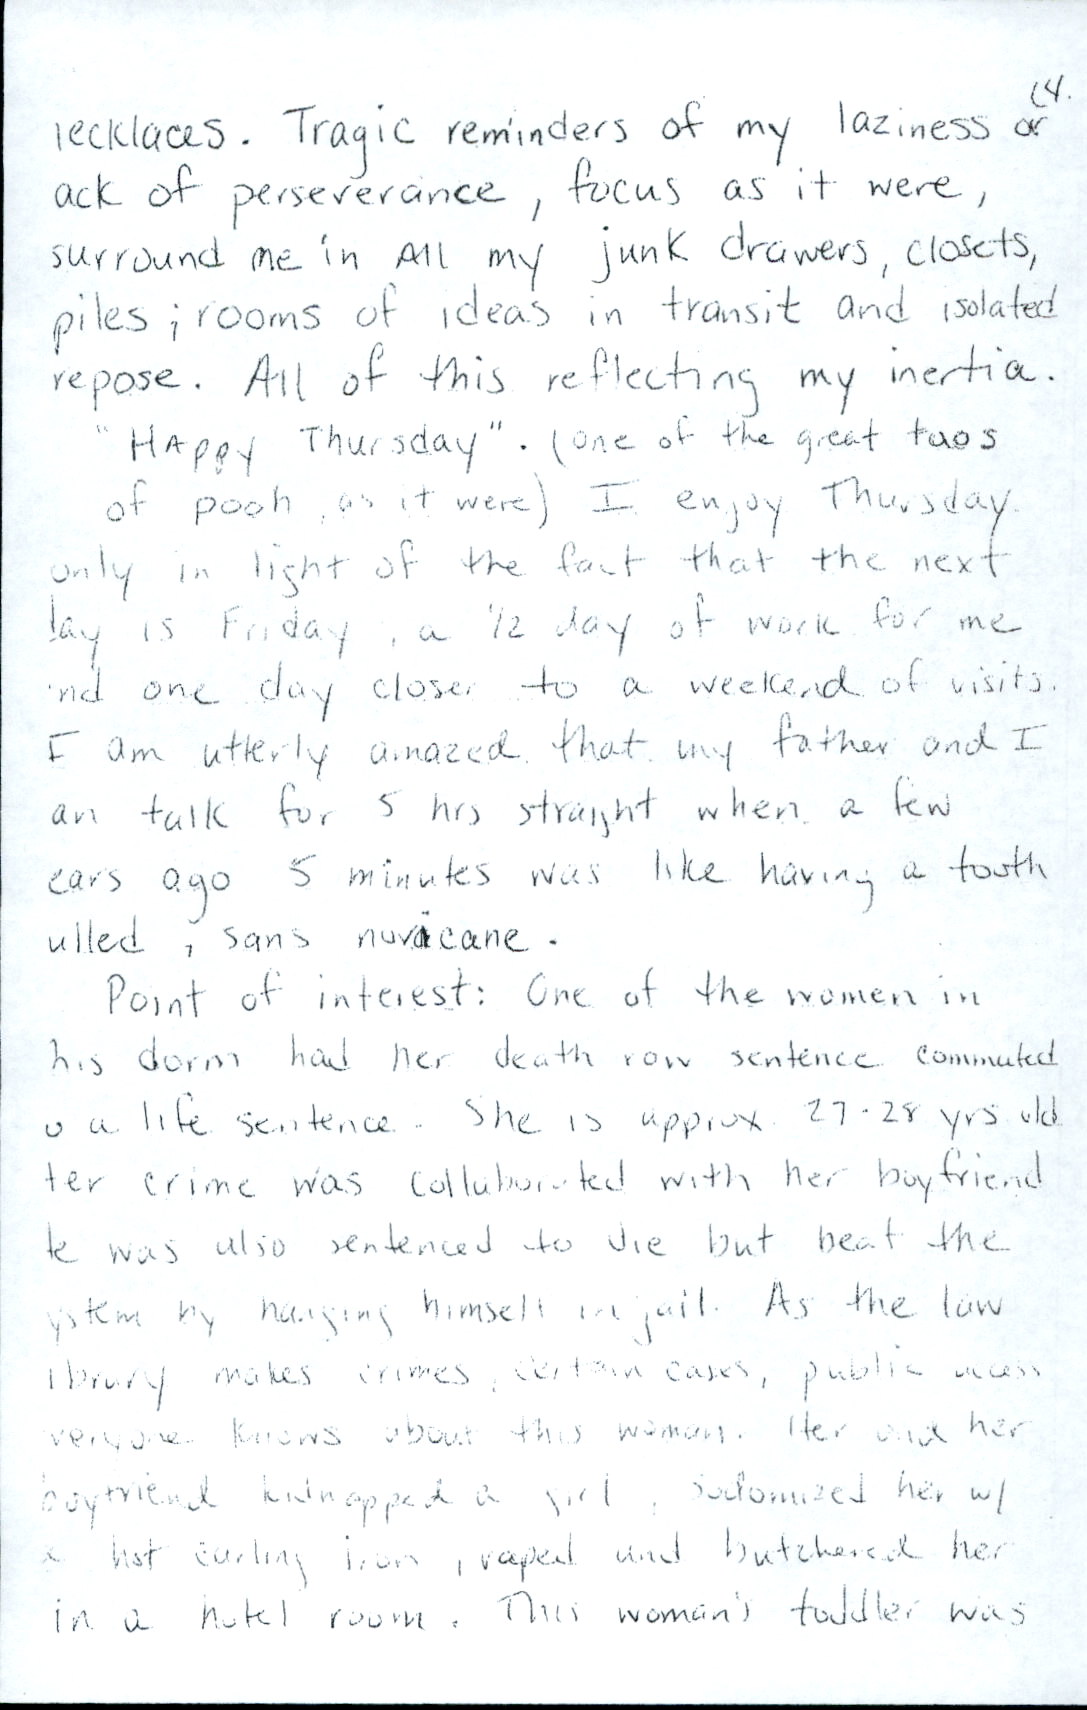 14.
necklaces. Tragic reminders of my laziness or
lack of perseverance, focus as it were,
surround me in All my junk drawers, closets,
piles; rooms of ideas in transit and isolated
repose. All of this reflecting my inertia.
"HAppy Thursday". (one of the great taos
of pooh, as it were) I enjoy Thursday
only in light of the fact that the next
day is Friday, a 1/2 day of work for me
and one day closer to a weekend of visits.
I am utterly amazed that my father and I
can talk for 5 hrs straight when a few
years ago 5 minutes was like having a tooth
pulled, sans novicane.
Point of interest: One of the women in
this dorm had her death row sentence commuted
to a life sentence. She is approx. 27-28 yrs old
Her crime was collaborated with her boyfriend
He was also sentenced to die but beat the
system by hanging himself in jail. As the law
library makes crimes, certain cases, public access
everyone knows about this woman. Her and her
boyfriend kidnapped a girl, sodomized her w/
a hot curling iron, raped and butchered her
in a hotel room. This woman's toddler was